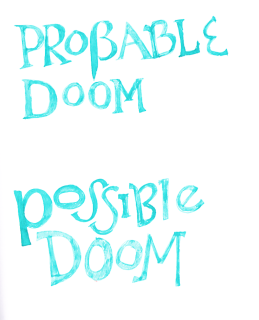 PROBABLE
DOOM
possible
DOOM